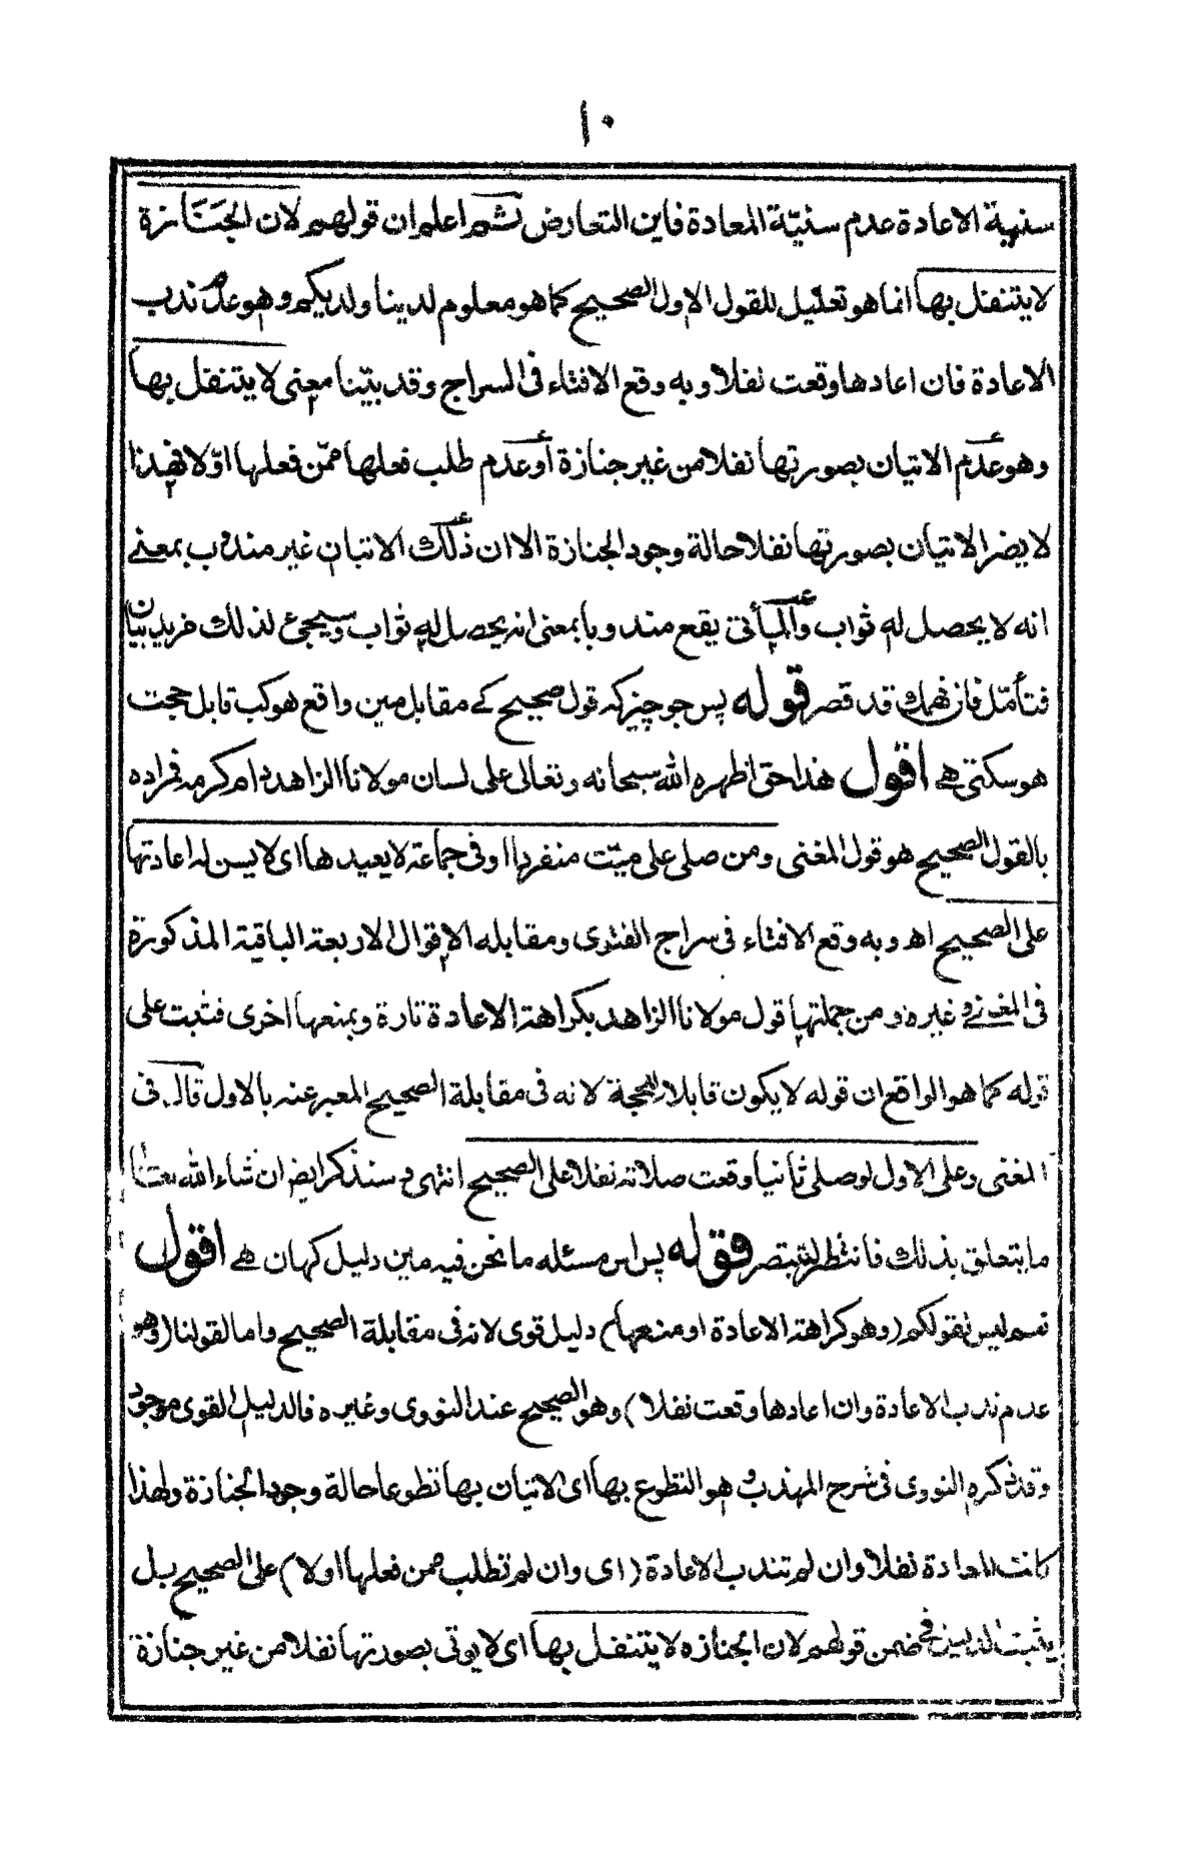 ١٠
سنية الاعادة عدم سنيّة المعادة فاين التعارض ثم اعلم ان قولهم لان الجَنَازة
لا يتنفل بها انما هو تعليل للقول الاول الصحيح كما هو معلوم لدينا ولديكم وهو عدم ندب
الاعادة فان اعادها وقعت نفلا وبه وقع الافتاء فى السراج وقد بيّنا معنى لا يتنفل بها
وهو عدم الاتيان بصورتها نفلا من غير جنازة أو عدم طلب فعلها ممّن فعلها اوّلا فهذا
لا يضر الاتيان بصورتها نفلا حالة وجود الجنازة الا ان ذلك الاتيان غير مندوب بمعنے
انه لا يحصل له ثواب والمأتى يقع مندوبا بمعنى انه يحصل له ثواب وسيجئ لذلك مزيد بيان
فتأمّل فان فهمك قد قصر قوله پس جو چیز کہ قول صحیح کے مقابل مین واقع ہو کب قابل حجت
ہو سکتی ہے اقول هذا حق اظهره الله سبحانه وتعالى على لسان مولانا الزاهد دام كرمه فمراده
بالقول الصحيح هو قول المغنى ومن صلى على ميّت منفردا او فى جماعة لا يعيدها اى لا يسن له اعادتها
على الصحيح اه وبه وقع الافتاء فى سراج الفتوى ومقابله الاقوال الاربعة الباقية المذكورة
فى المغنى وغيره ومن جملتها قول مولانا الزاهد بكراهة الاعادة تارة وبمنعها اخرى فثبت على
قوله كما هو الواقع ان قوله لا يكون قابلا للحجة لانه فى مقابلة الصحيح المعبر عنه بالاول قال فى
المغنى وعلى الاول لو صلى ثانيا وقعت صلاته نفلا على الصحيح انتهى وسنذكر ايضا ان شاء الله تعالى
ما يتعلق بذلك فانتظر لتبتصر فقوله پس اس مسئلہ ما نحن فیہ مین دلیل کہان ہے اقول
نعم ليس لقولكم (وهو كراهة الاعادة او منعها) دليل قوى لانه فى مقابلة الصحيح واما لقولنا (وهو
عدم ندب الاعادة وان اعادها وقعت نفلا) وهو الصحيح عند النووى وغيره فالدليل القوى موجود
وقد ذكره النووى فى شرح المهذب وهو التطوع بها اى الاتيان بها تطوعا حالة وجود الجنازة ولهذا
كانت المعادة نفلا وان لم تندب الاعادة (اى وان لم تطلب ممن فعلها اولا) على الصحيح بل
يثبت فى ضمن قولهم لان الجنازه لا يتنفل بها اى لا يوتى بصورتها نفلا من غير جنازة